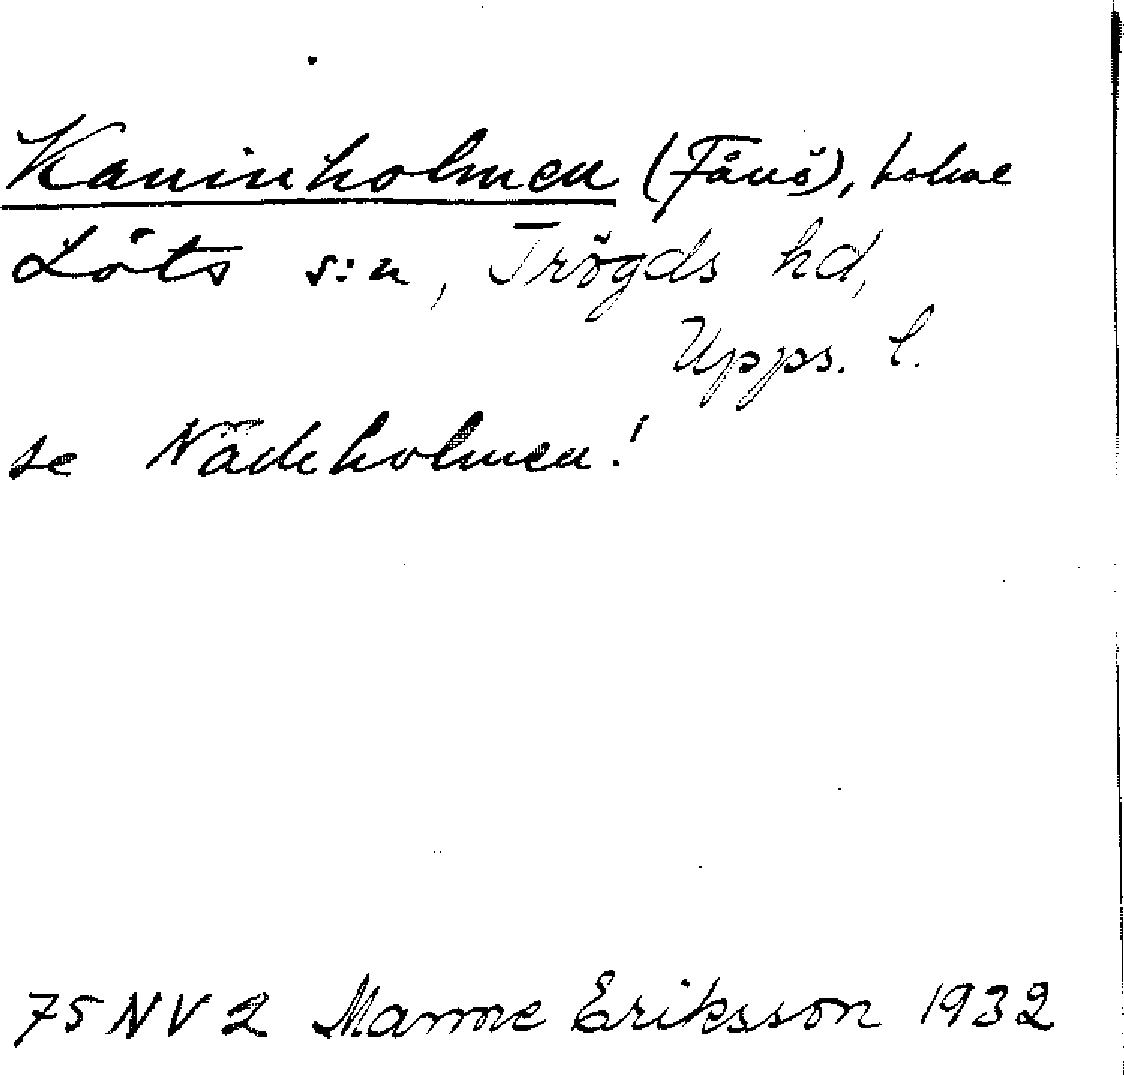 Kaninholmen (Fånö), holme
Löts s:n, Trögds hd,
Upps. l.
se Näckholmen!
75 NV 2 Manne Eriksson 1932